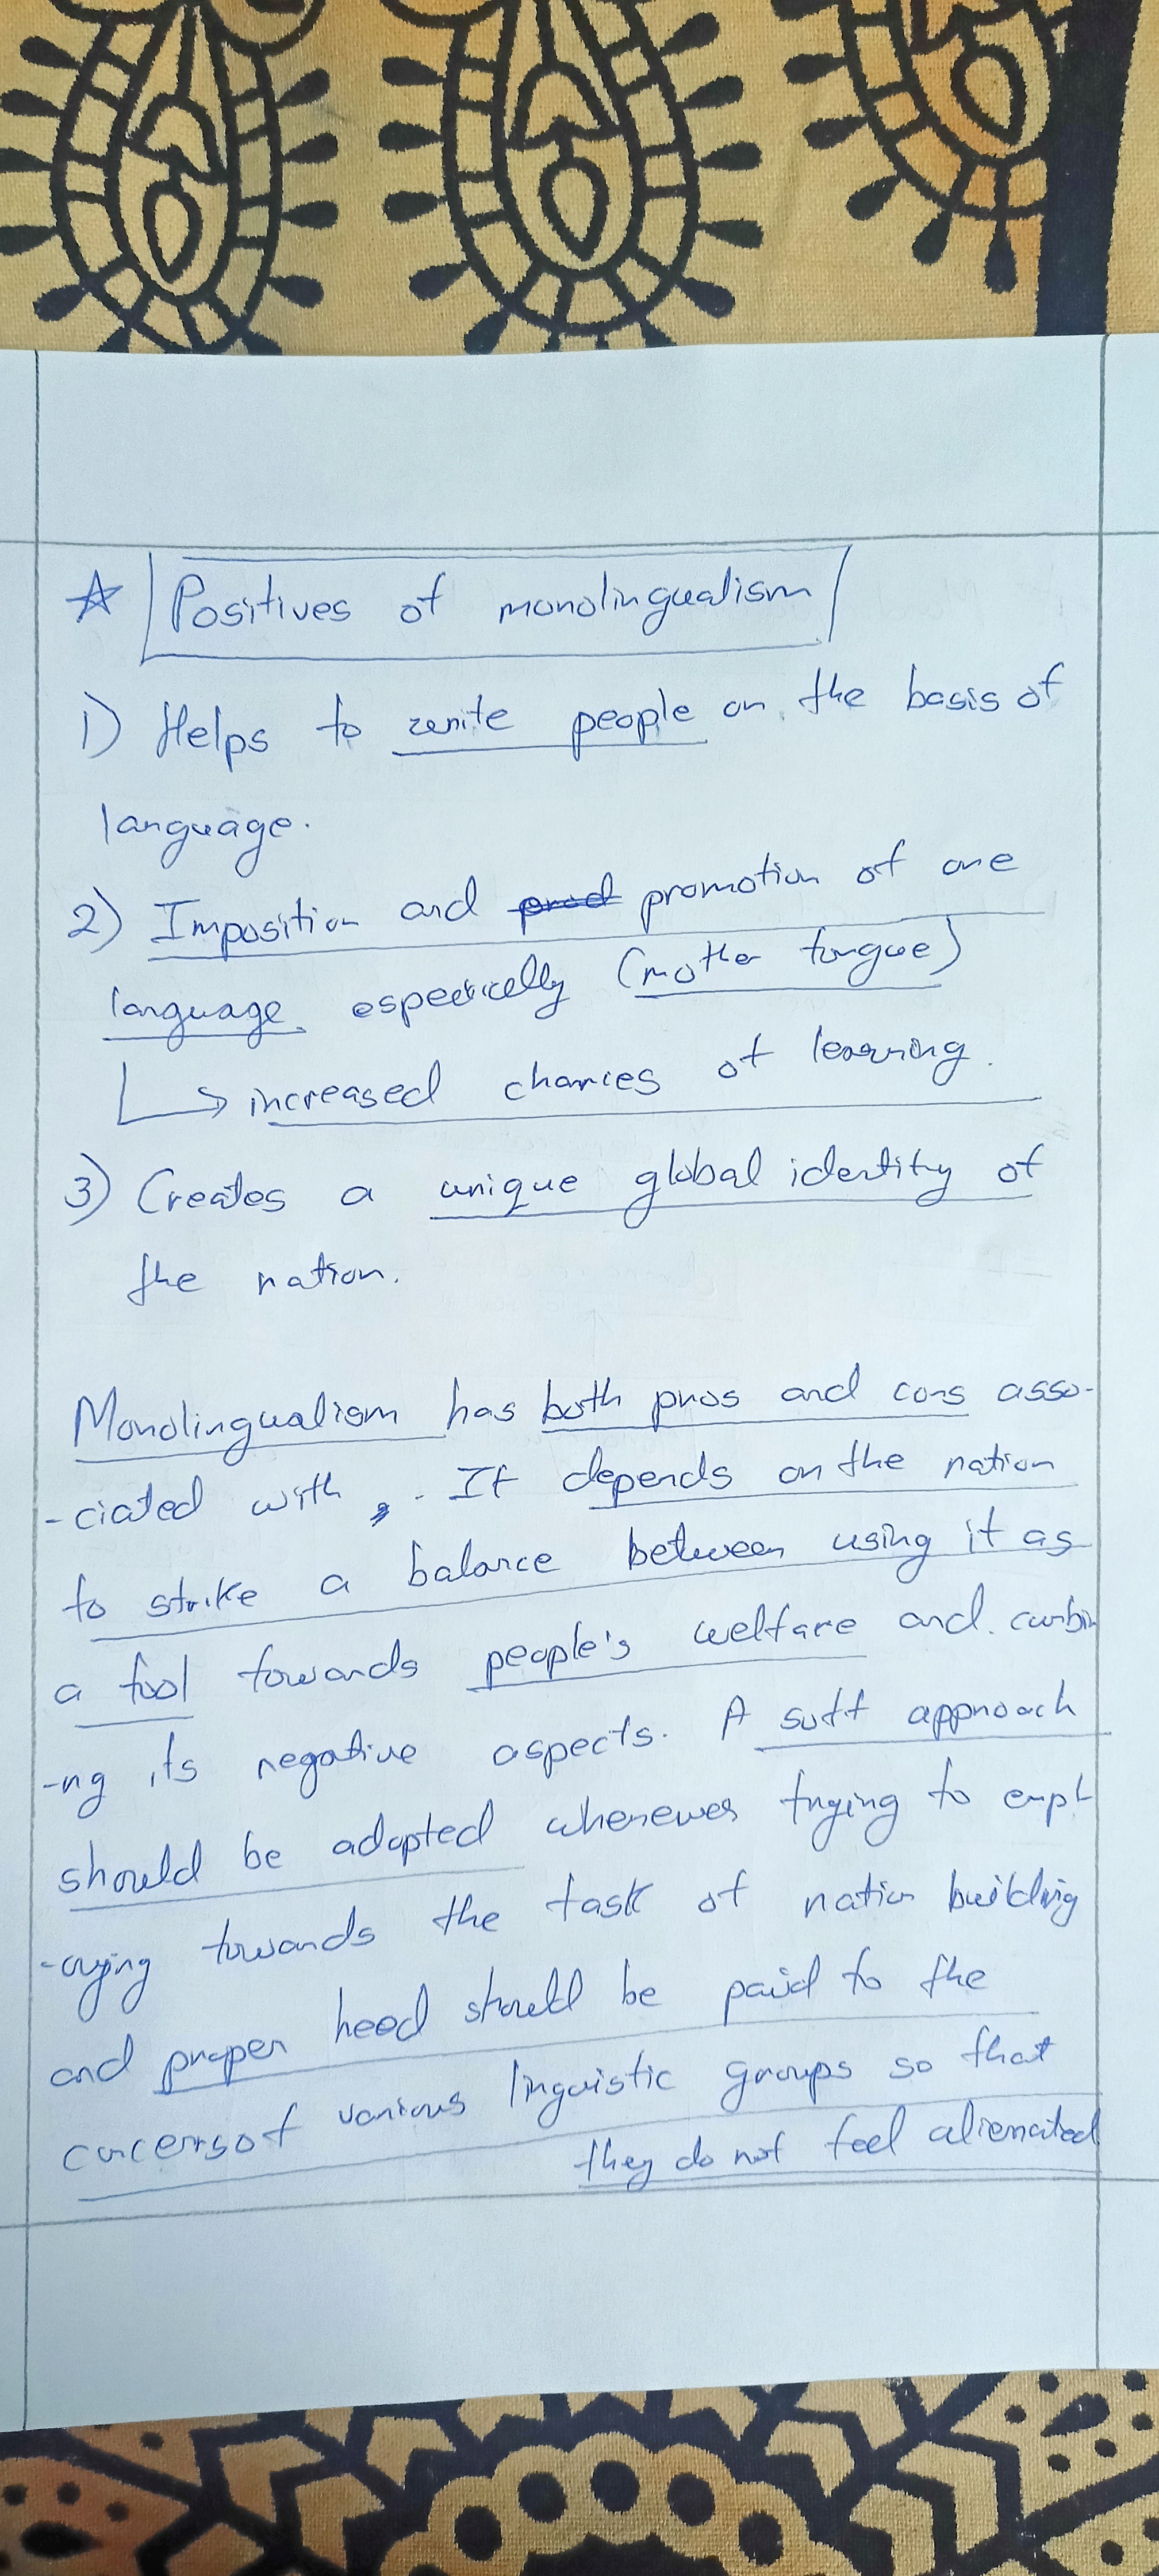 ☆ Positives of monolingualism
1) Helps to unite people on the basis of
language.
2) Imposition and prod promotion of one
language especically (mother tongue)
↳ increased chances of learning.
3) Creates a unique global identity of
the nation.
Monolingualism has both pros and cons asso-
-ciated with, . It depends on the nation
to strike a balance between using it as
a tool towards people's welfare and curbi
-ng its negative aspects. A soft approach
should be adopted whenever trying to empl
-oying towards the task of nation building
and proper heed should be paid to the
concerns of various linguistic groups so that
they do not feel alienated